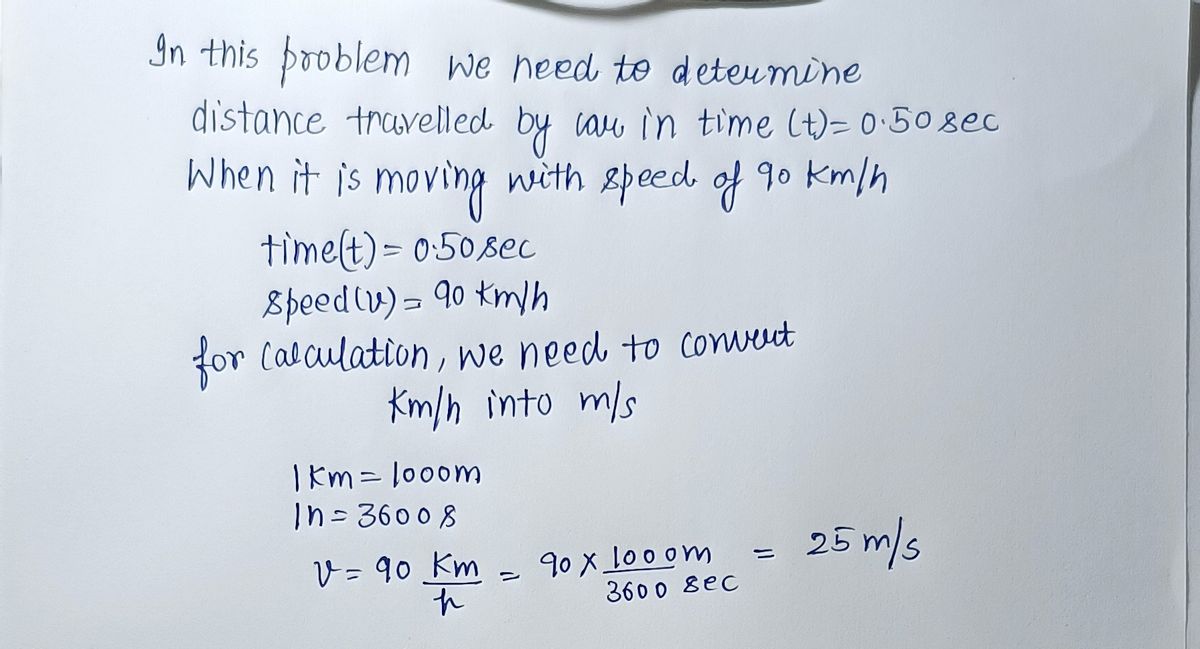 In this problem we need to determine
distance travelled by car in time (t)= 0.50 sec
When it is moving with speed of 90 km/h
time(t) = 0.50 sec
speed(v) = 90 km/h
for calculation, we need to convert
Km/h into m/s
1 Km = 1000m
1h = 3600 s
v = 90 Km/h = 90 X 1000m/3600 sec = 25 m/s